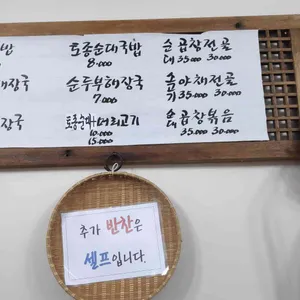 밥
토종순대국밥
8.000
순곱창전골
대 35.000 30.000
해장국
순두부해장국
7.000
곱야채전골
35.000 30.000
장국
토종순대
머리고기
10.000
15.000
곱창볶음
35.000 30.000
추가 반찬은
셀프입니다.